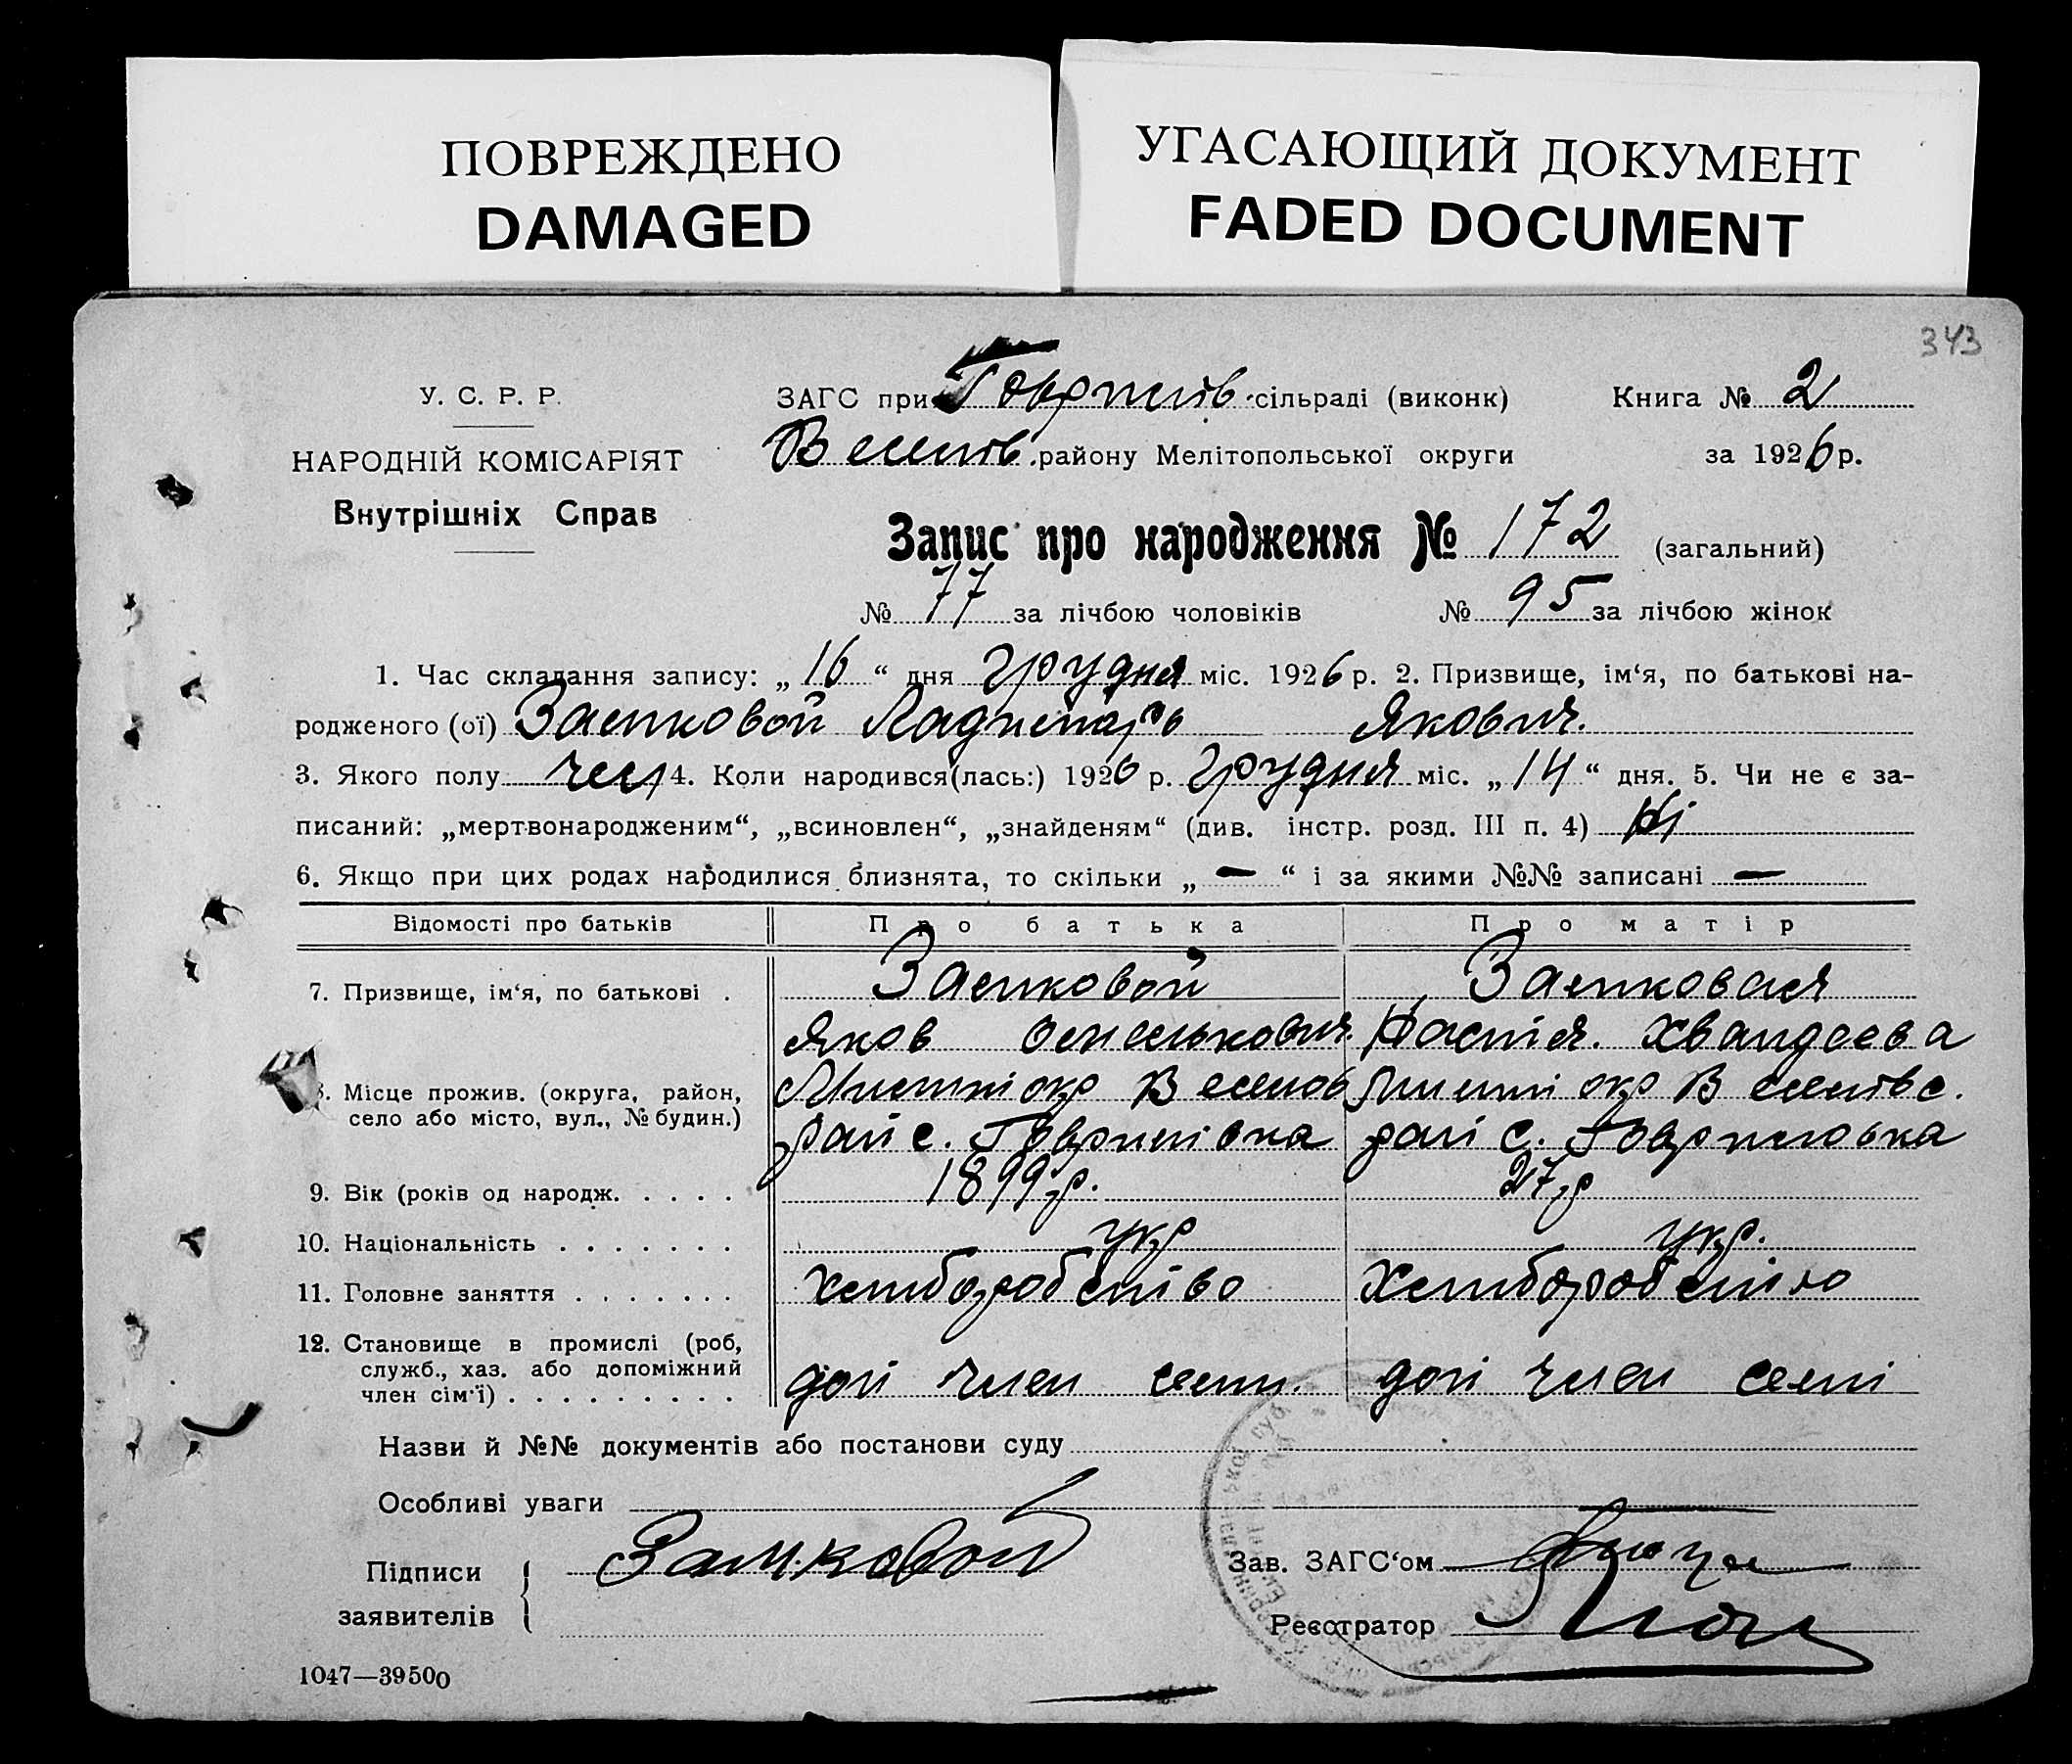 ПОВРЕЖДЕНО
DAMAGED
УГАСАЮЩИЙ ДОКУМЕНТ
FADED DOCUMENT
343
У. С. Р. Р.
ЗАГС при Гаврилів. сільраді (виконк) Книга № 2
НАРОДНІЙ КОМІСАРІЯТ
Веселів. району Мелітопольської округи за 1926 р.
Внутрішніх Справ
Запис про народження № 172 (загальний)
№ 77 за лічбою чоловіків № 95 за лічбою жінок
1. Час складання запису: „16“ дня грудня міс. 1926 р. 2. Призвище, ім‘я, по батькові на-
родженого (ої) Якович.
3. Якого полу чол 4. Коли народився(лась:) 1926 р. грудня міс. „14“ дня. 5. Чи не є за-
писаний: „мертвонародженим“, „всиновлен“, „знайденям“ (див. інстр. розд. III п. 4) Ні
6. Якщо при цих родах народилися близнята, то скільки „—“ і за якими №№ записані —
Відомості про батьків Про батька Про матір
7. Призвище, ім‘я, по батькові .
Яков
8. Місце прожив. (округа, район, село або місто, вул., № будин.)
рай с. Гаврилівка рай с. Гавриловка
9. Вік (років од народж. . . . . 1899 р. 27 р
10. Національність . . . . . . . укр укр.
11. Головне заняття . . . . . . . хлиборобство хлиборобство
12. Становище в промислі (роб,
служб., хаз. або допоміжний
член сім‘ї) . . . . . . . . . доп член семи. доп член семі
Назви й №№ документів або постанови суду
Особливі уваги
Підписи
заявителів
Зав. ЗАГС‘ом
Реєстратор
1047—39500